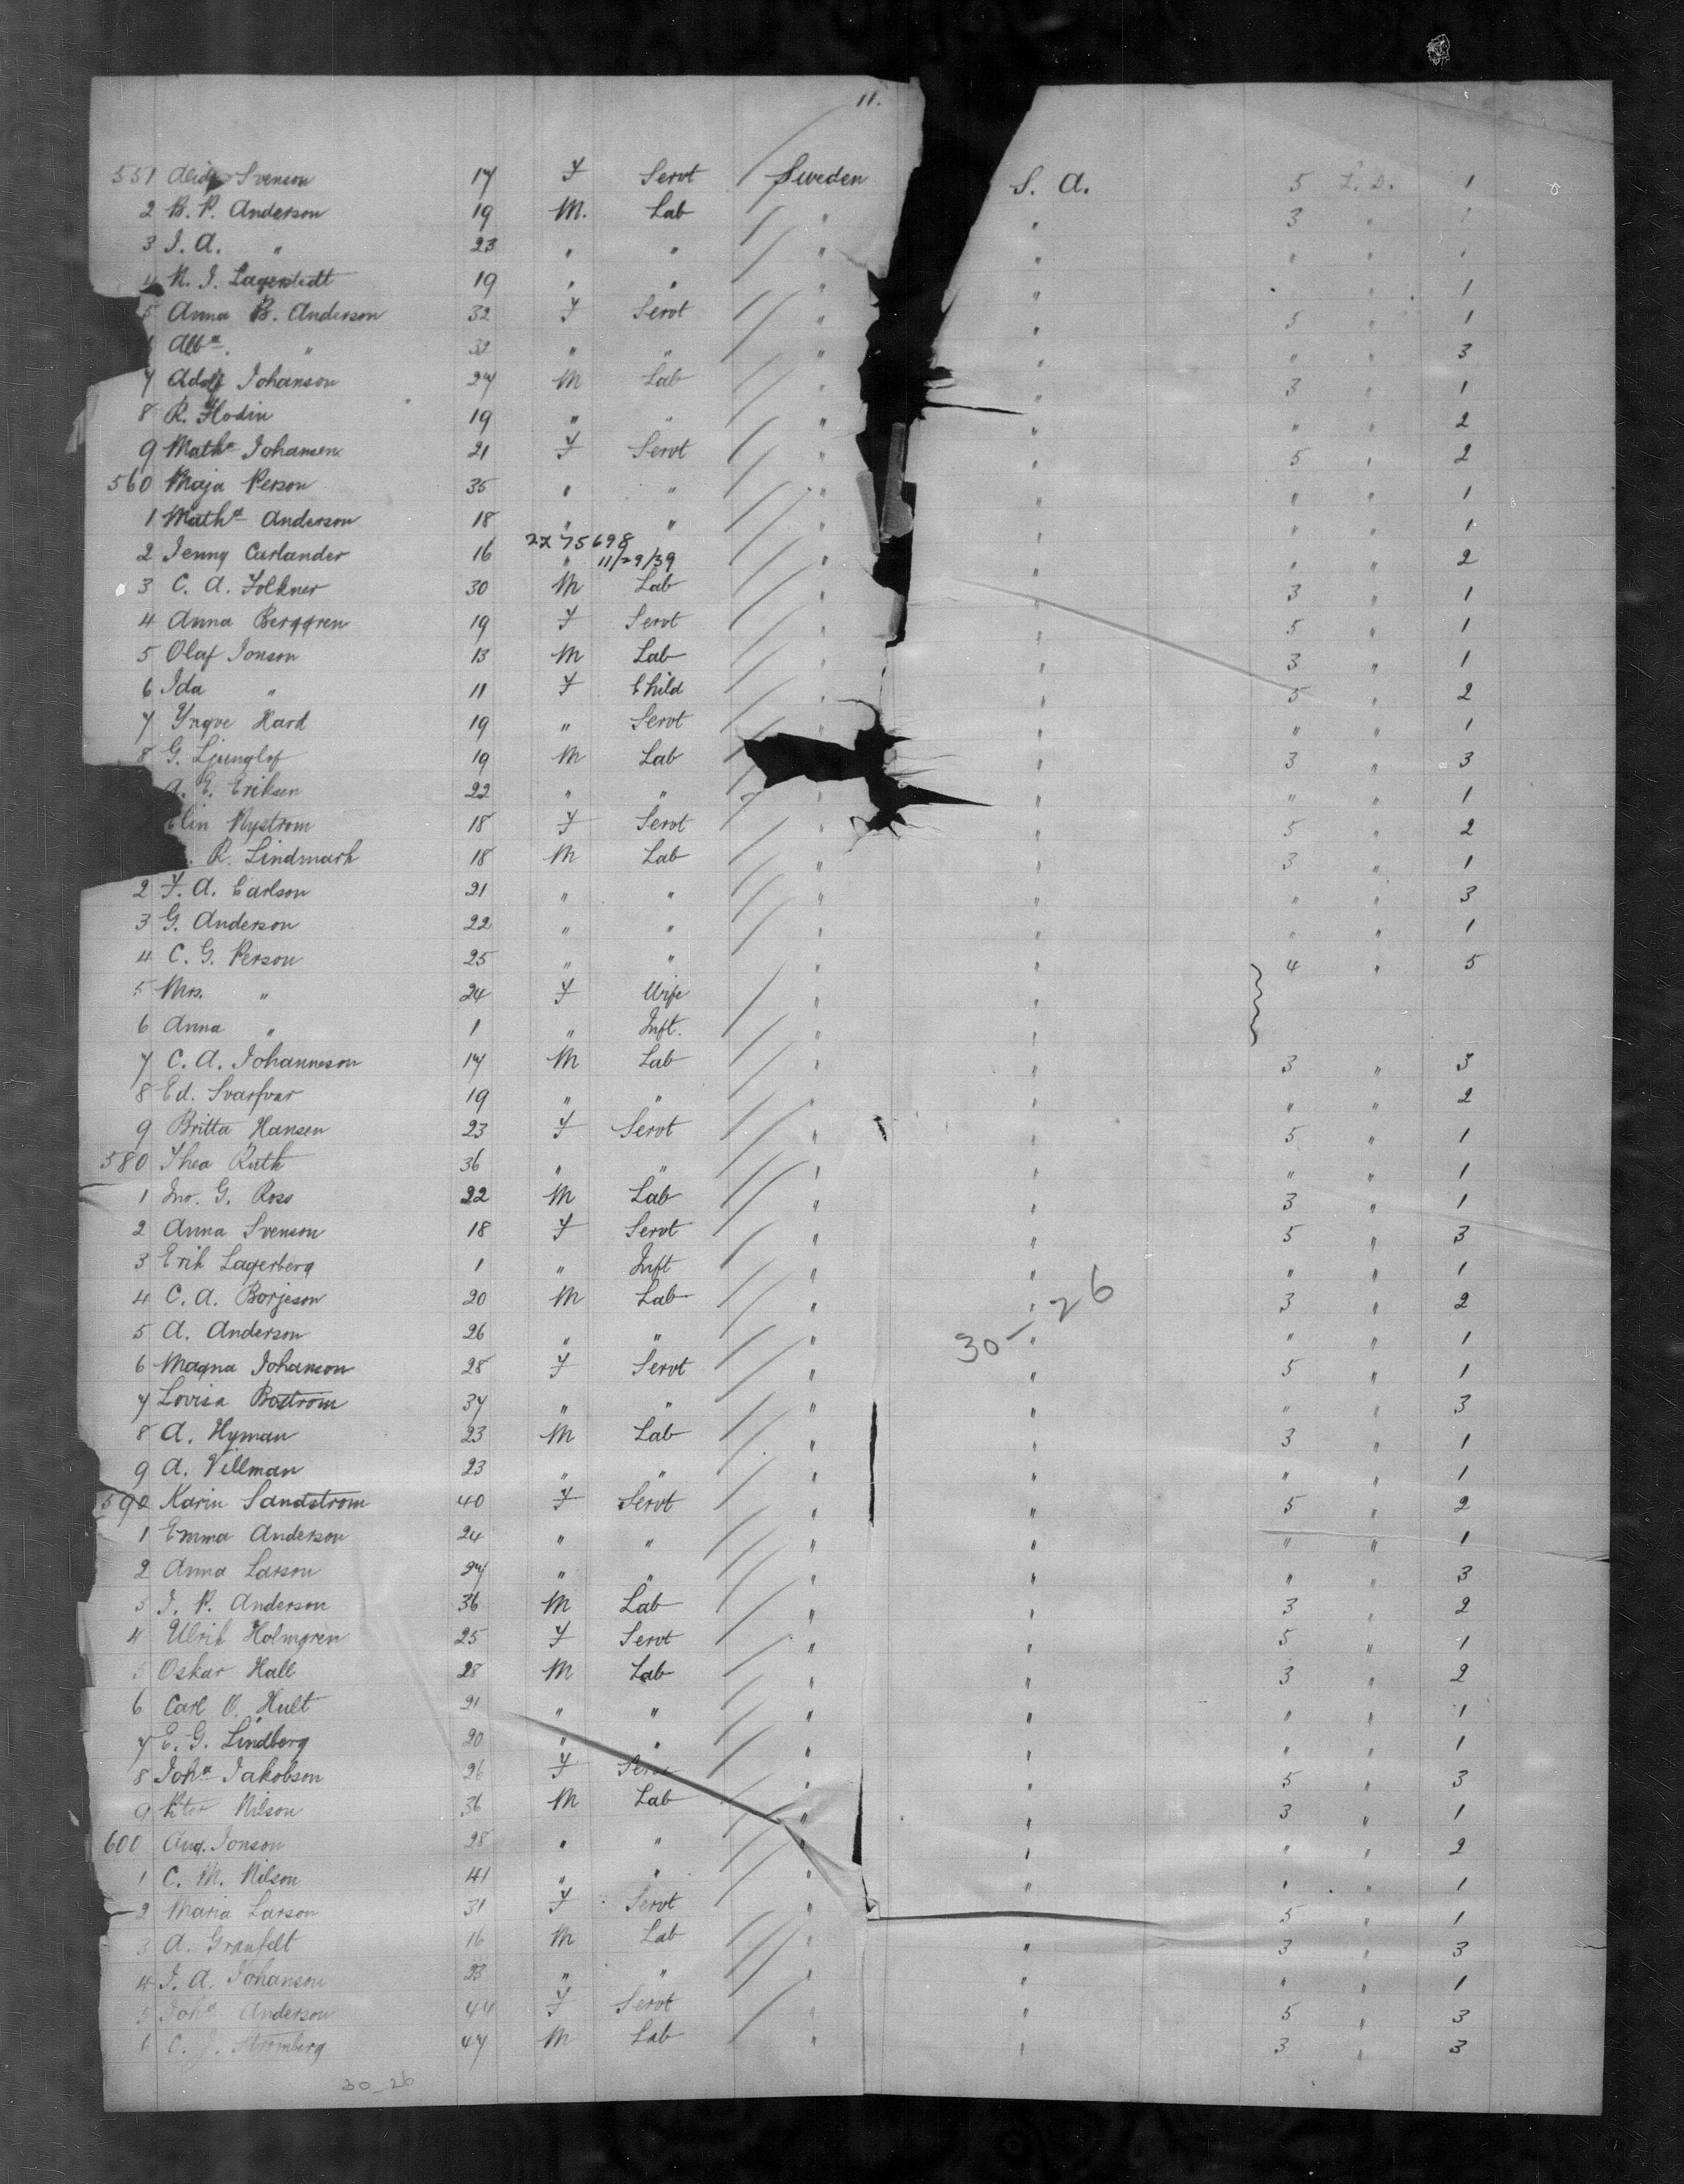 11.
551 Svenson 17 F Servt Sweden S. A. 5 L. D. 1
2 B. P. Anderson 19 M. Lab " " 3 " 1
3 J. A. " 23 " " " " " " 1
4 N. J. Lagerstedt 19 " " " " " " 1
5 Anna B. Anderson 32 F Servt " " 5 " 1
Alba. " 32 " " " " " " 3
7 Adolf Johanson 27 M Lab " " 3 " 1
8 R. Flodin 19 " " " " " " 2
9 Matha Johansen 21 F Servt " " 5 " 2
560 Maja Person 35 " " " " " " 1
1 Matha Anderson 18 " " " " " " 1
2X75698
2 Jenny Carlander 16 " 11/29/39 " " " " 2
3 C. A. Folkner 30 M Lab " " 3 " 1
4 Anna Berggren 19 F Servt " " 5 " 1
5 Olaf Jonson 13 M Lab " " 3 " 1
6 Ida " 11 F Child " " 5 " 2
7 Yngve Hard 19 " Servt " " " " 1
8 G. Ljunglof 19 M Lab " " 3 " 3
A. E. Eriksen 22 " " " " " " 1
Elin Nystrom 18 F Servt " " 5 " 2
R. Lindmark 18 M Lab " " 3 " 1
2 F. A. Carlson 21 " " " " " " 3
3 G. Anderson 22 " " " " " " 1
4 C. G. Person 25 " " " " 4 " 5
5 Mrs. " 24 F Wife " "
6 Anna " 1 " Inft. " "
7 C. A. Johanneson 17 M Lab " " 3 " 3
8 Ed. Svarfvar 19 " " " " " " 2
9 Britta Hansen 23 F Servt " " 5 " 1
580 Thea Ruth 36 " " " " " " 1
1 Jno. G. Ross 22 M Lab " " 3 " 1
2 Anna Svenson 18 F Servt " " 5 " 3
3 Erik Lagerberg 1 " Inft " " " " 1
4 C. A. Borjeson 20 M Lab " " 3 " 2
30-26
5 A. Anderson 26 " " " " " " 1
6 Magna Johanson 28 F Servt " " 5 " 1
7 Lovisa Bostrom 37 " " " " " " 3
8 A. Hyman 23 M Lab " " 3 " 1
9 A. Villman 23 " " " " " " 1
590 Karin Sandstrom 40 F Servt " " 5 " 2
1 Emma Anderson 24 " " " " " " 1
2 Anna Larson 27 " " " " " " 3
3 J. P. Anderson 36 M Lab " " 3 " 2
4 Ulrik Holmgren 25 F Servt " " 5 " 1
5 Oskar Hall 28 M Lab " " 3 " 2
6 Carl O. Hult 21 " " " " " " 1
7 E. G. Lindberg 20 " " " " " " 1
8 Joha Jakobson 26 F Servt " " 5 " 3
9 Peter Nilson 36 M Lab " " 3 " 1
600 Aug. Jonson 28 " " " " " " 2
1 C. M. Nilson 41 " " " " " " 1
2 Maria Larson 31 F Servt " 5 " 1
3 A. Granfelt 16 M Lab " " 3 " 3
4 J. A. Johanson 23 " " " " " " 1
5 Joha Anderson 44 F Servt " " 5 " 3
6 C. J. Stromberg 47 M Lab " " 3 " 3
30-26